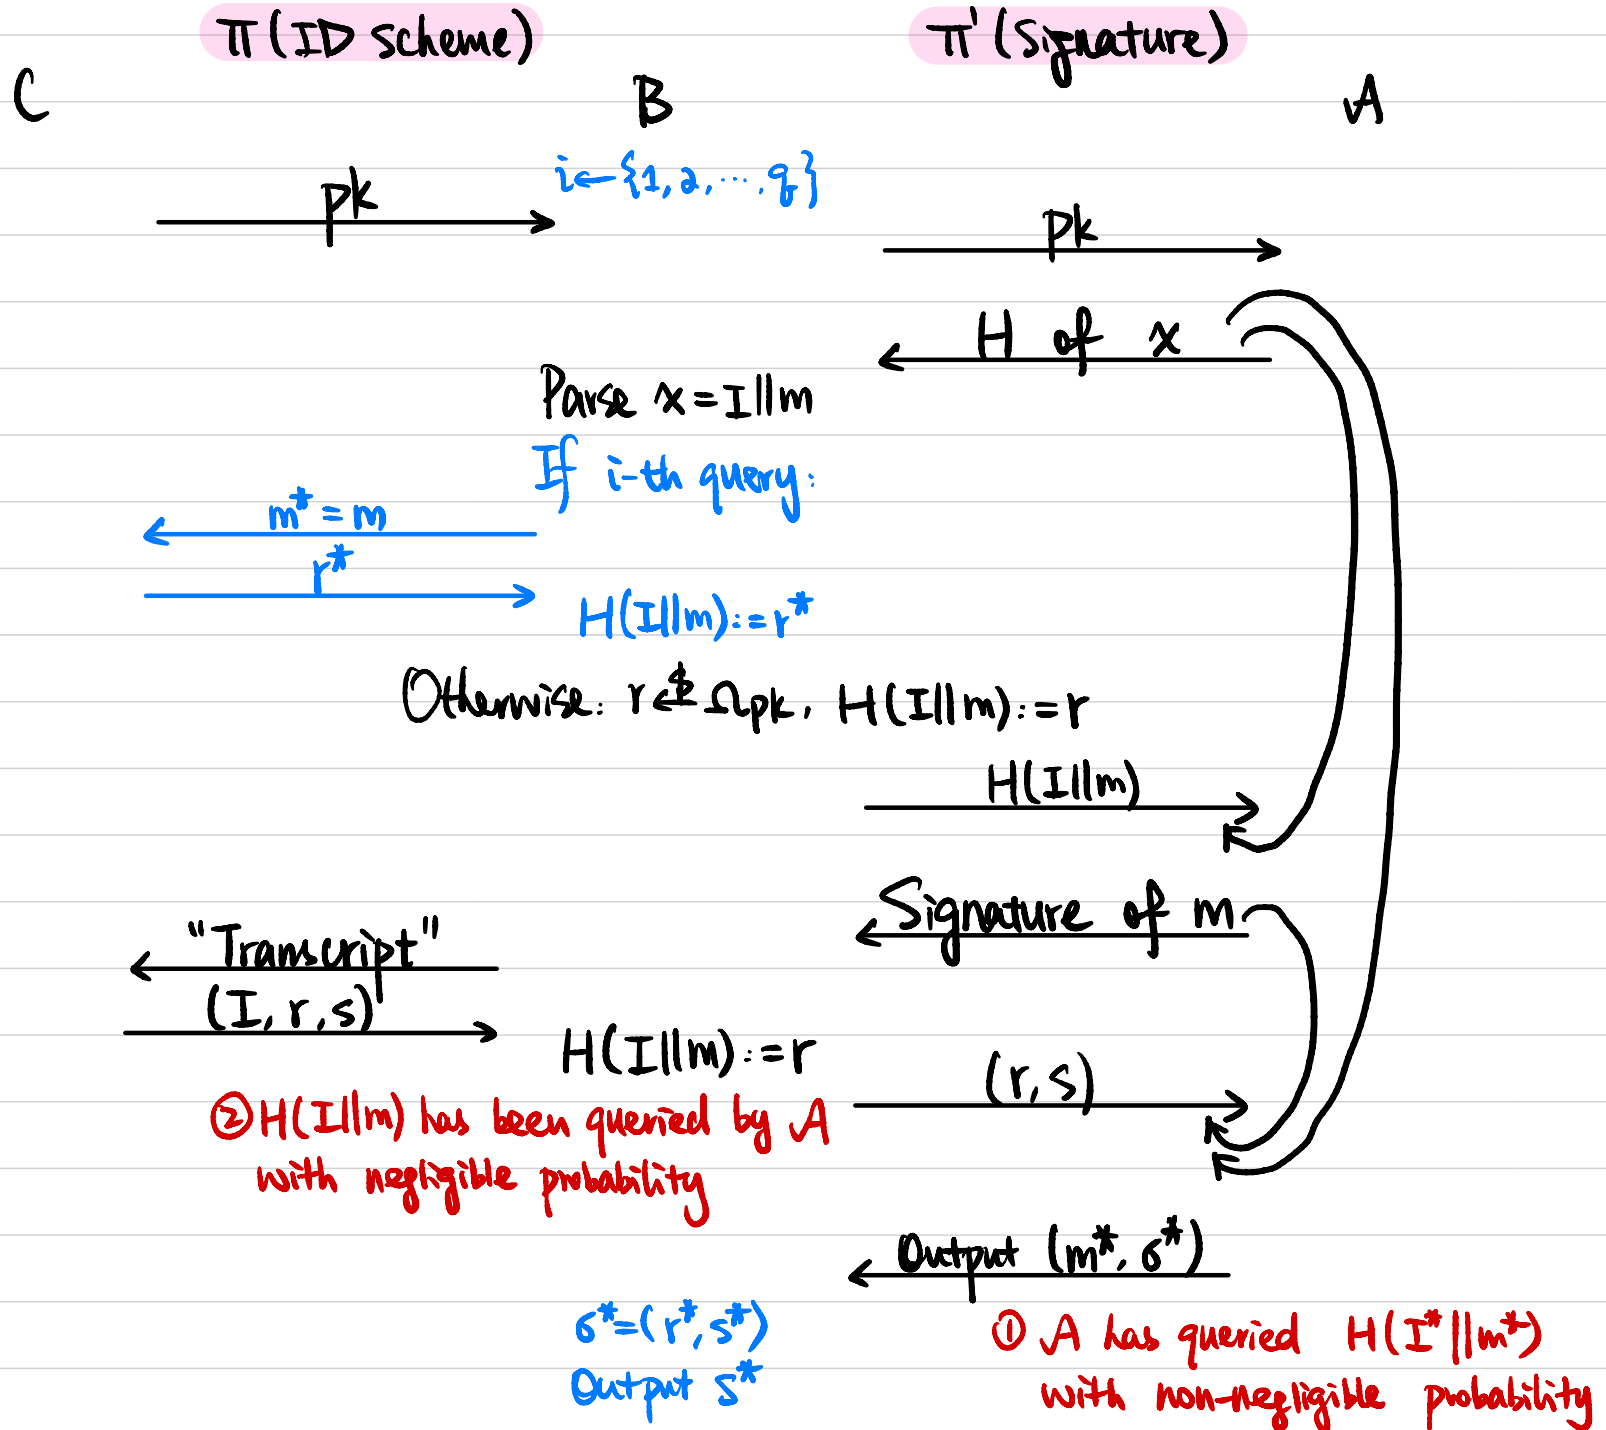 π (ID scheme)
π' (Signature)
C
B
A
i←{1, 2, ..., q}
pk
pk
H of x
Parse x = I||m
If i-th query:
m* = m
r*
H(I||m) := r*
Otherwise: r ←$ Ωpk, H(I||m) := r
H(I||m)
Signature of m
"Transcript"
(I, r, s)
H(I||m) := r
(r, s)
② H(I||m) has been queried by A
with negligible probability
Output (m*, σ*)
σ* = (r*, s*)
Output s*
① A has queried H(I*||m*)
with non-negligible probability